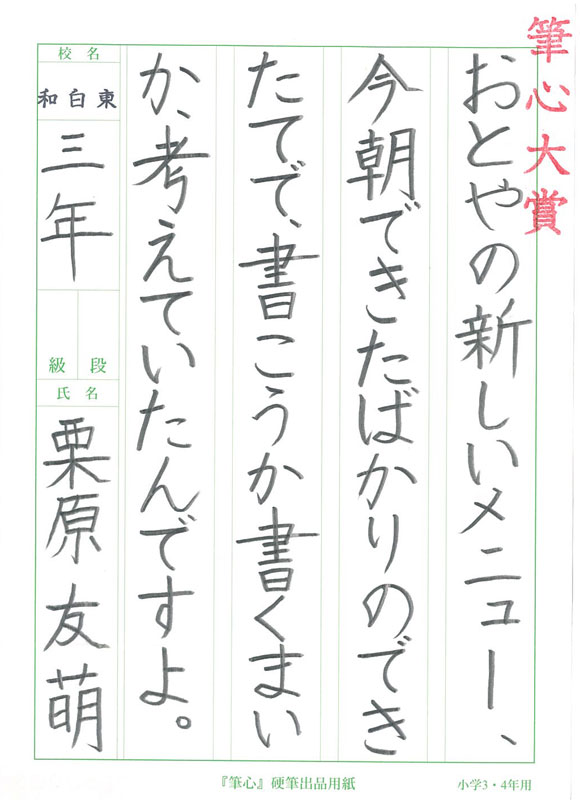 筆心大賞
おとやの新しいメニュー、
今朝できたばかりのでき
たてで、書こうか書くまい
か、考えていたんですよ。
校名
和白東
三年
段
級
氏名
栗原友萌
『筆心』硬筆出品用紙
小学3・4年用